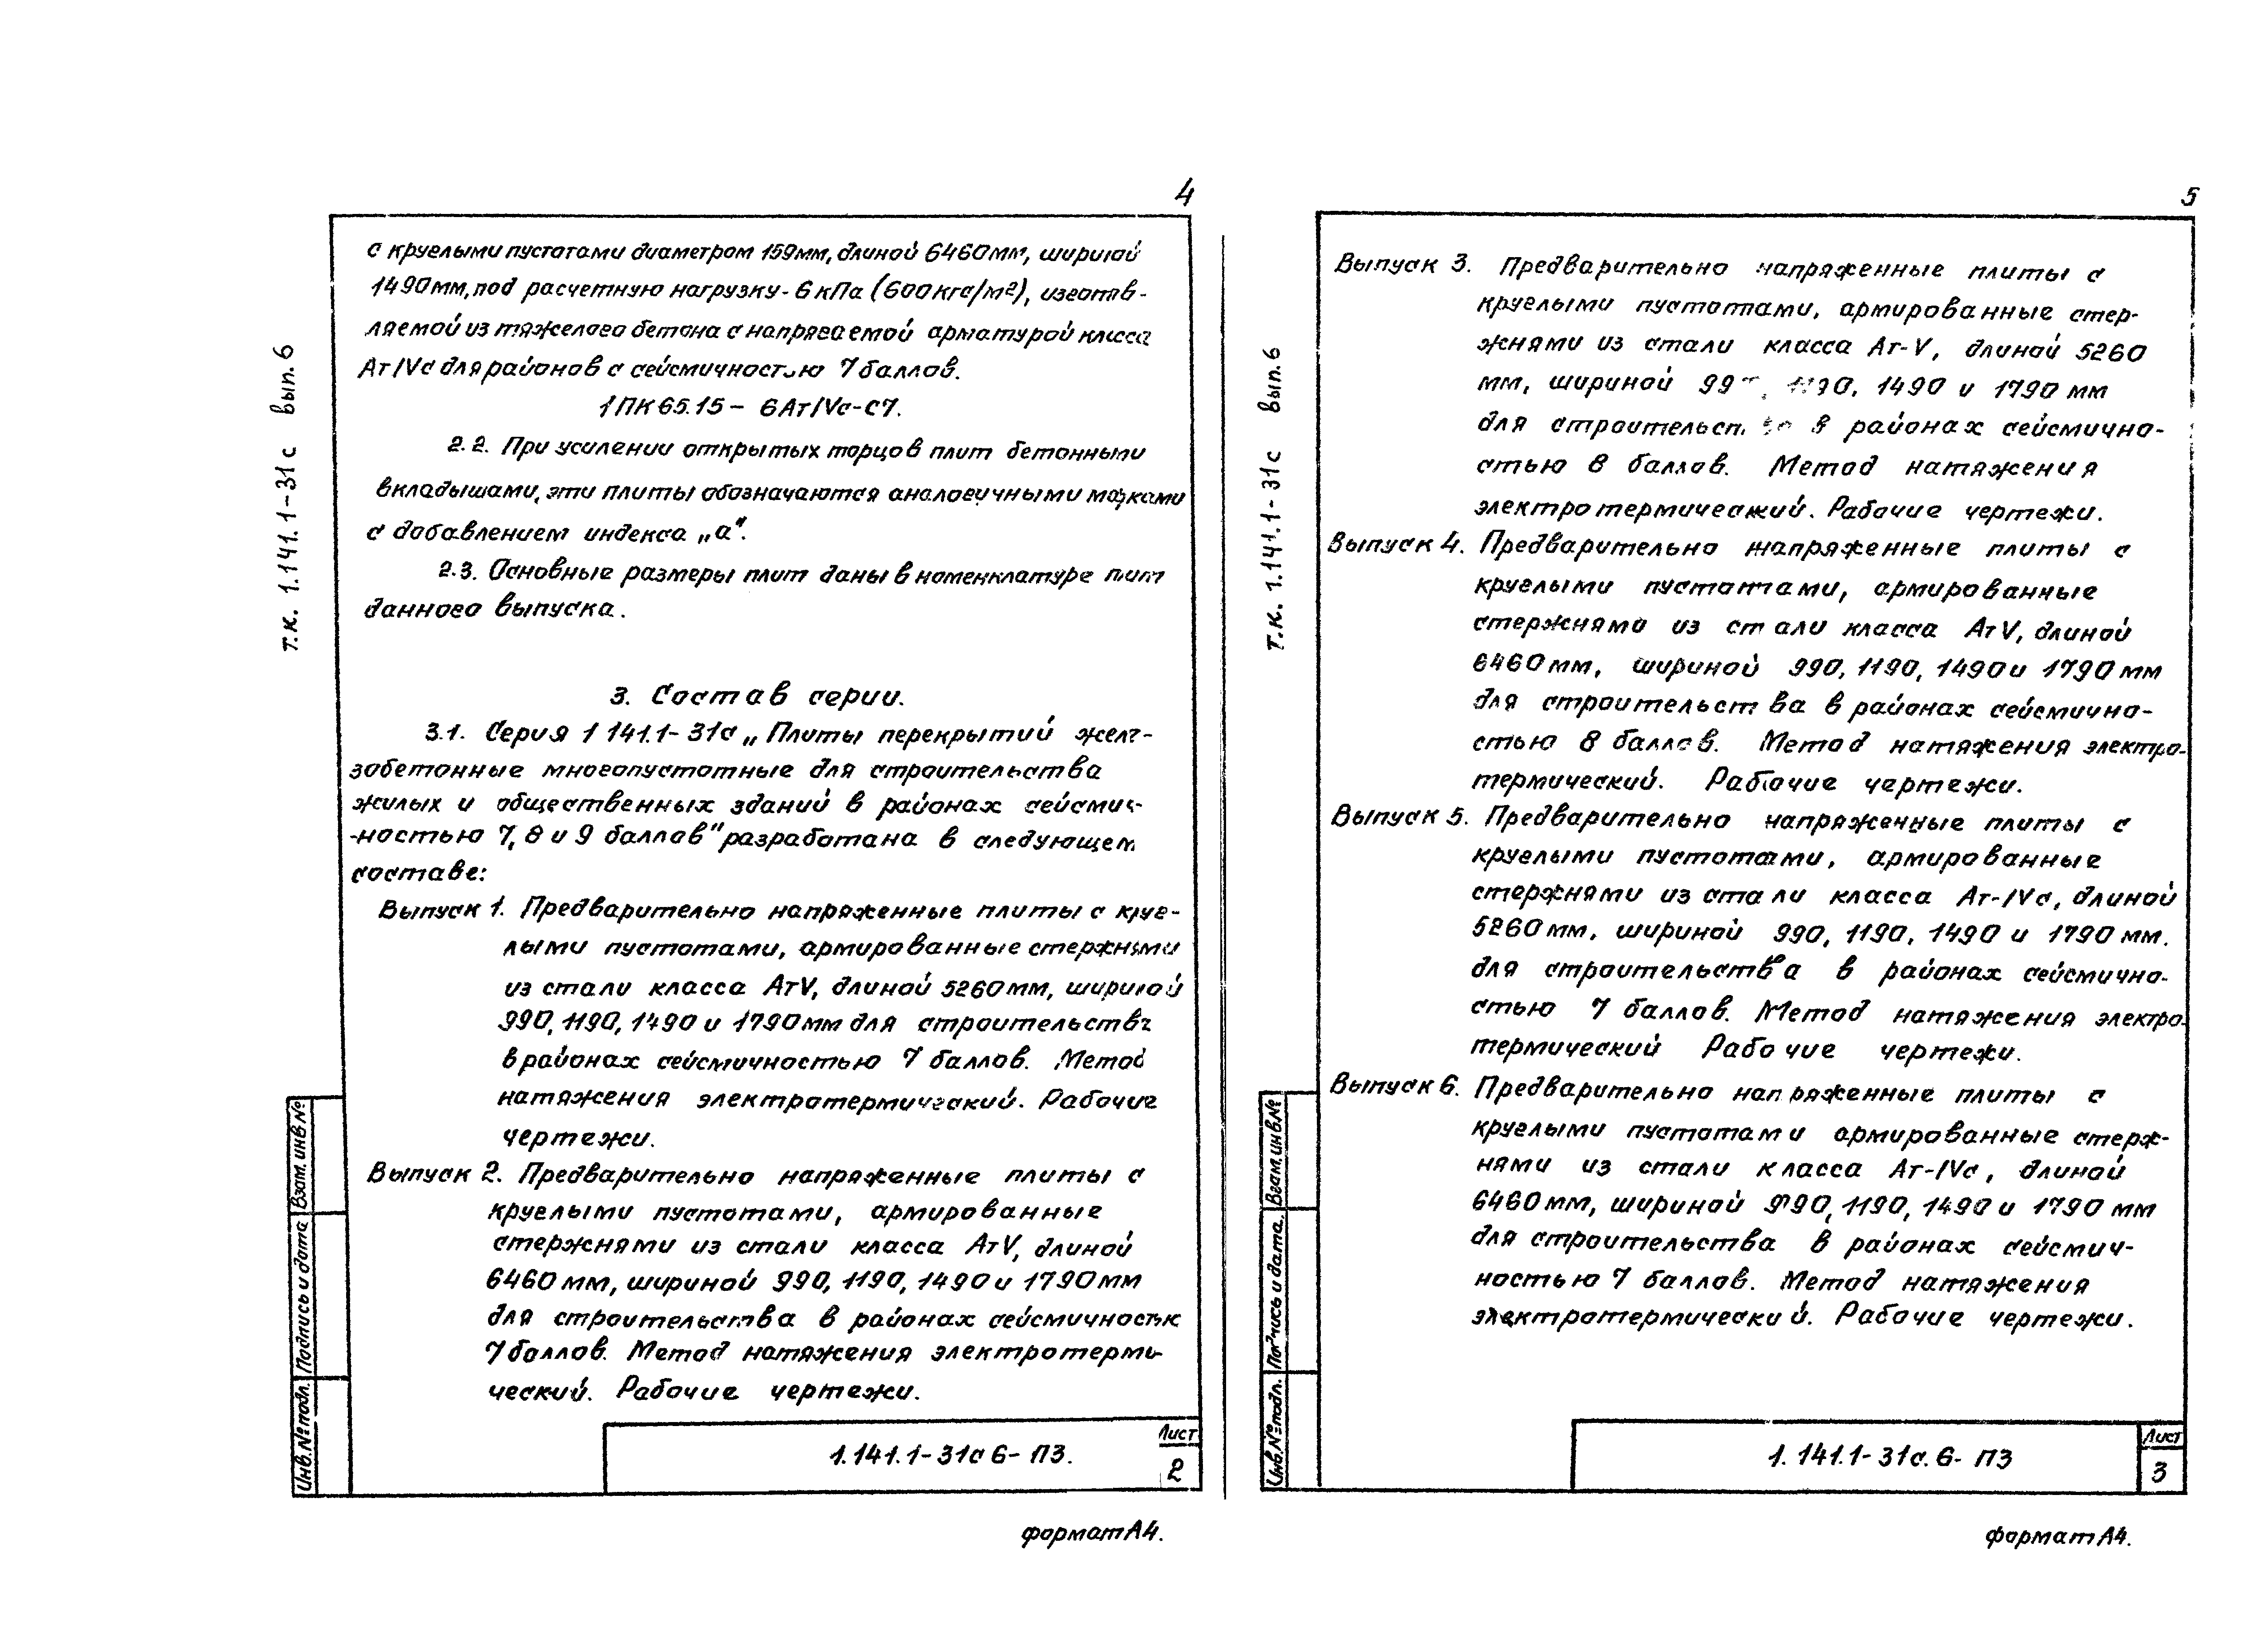 4
с круглыми пустотами диаметром 159мм, длиной 6460мм, шириной
1490мм, под расчетную нагрузку - 6 кПа (600кгс/м²), изготав-
ляемой из тяжелого бетона с напрягаемой арматурой класса
Ат/Vс для районов с сейсмичностью 7 баллов.
1ПК65.15 - 6Ат/Vс-С7.
2.2. При усилении открытых торцов плит бетонными
вкладышами, эти плиты обозначаются аналогичными марками
с добавлением индекса „а".
2.3. Основные размеры плит даны в номенклатуре плит
данного выпуска.
3. Состав серии.
3.1. Серия 1 141.1-31с „Плиты перекрытий желе-
зобетонные многопустотные для строительства
жилых и общественных зданий в районах сейсмич-
-ностью 7, 8 и 9 баллов" разработана в следующем
составе:
Выпуск 1. Предварительно напряженные плиты с круг-
лыми пустотами, армированные стержнями
из стали класса АтV, длиной 5260мм, шириной
990, 1190, 1490 и 1790мм для строительства
в районах сейсмичностью 7 баллов. Метод
натяжения электротермический. Рабочие
чертежи.
Выпуск 2. Предварительно напряженные плиты с
круглыми пустотами, армированные
стержнями из стали класса АтV, длиной
6460мм, шириной 990, 1190, 1490 и 1790мм
для строительства в районах сейсмичностью
7 баллов. Метод натяжения электротерми-
ческий. Рабочие чертежи.
1.141.1-31с 6-ПЗ.
Лист
2
формат А4.
т.к. 1.141.1-31с вып.6
Взам. инв №
Подпись и дата
Инв.№ подл.
5
Выпуск 3. Предварительно напряженные плиты с
круглыми пустотами, армированные стер-
жнями из стали класса Ат-V, длиной 5260
мм, шириной 1190, 1490 и 1790 мм
для в районах сейсмично-
стью 8 баллов. Метод натяжения
электротермический. Рабочие чертежи.
Выпуск 4. Предварительно напряженные плиты с
круглыми пустотами, армированные
стержнями из стали класса АтV, длиной
6460мм, шириной 990, 1190, 1490 и 1790мм
для строительства в районах сейсмично-
стью 8 баллов. Метод натяжения электро-
термический. Рабочие чертежи.
Выпуск 5. Предварительно напряженные плиты с
круглыми пустотами, армированные
стержнями из стали класса Ат-/Vс, длиной
5260мм, шириной 990, 1190, 1490 и 1790 мм.
для строительства в районах сейсмично-
стью 7 баллов. Метод натяжения электро-
термический Рабочие чертежи.
Выпуск 6. Предварительно напряженные плиты с
круглыми пустотами армированные стерж-
нями из стали класса Ат-/Vс, длиной
6460мм, шириной 990, 1190, 1490 и 1790 мм
для строительства в районах сейсмич-
ностью 7 баллов. Метод натяжения
электротермический. Рабочие чертежи.
1.141.1-31с.6-ПЗ
Лист
3
формат А4.
т.к. 1.141.1-31с вып.6
Взам.инв№
Подпись и дата.
Инв.№ подл.